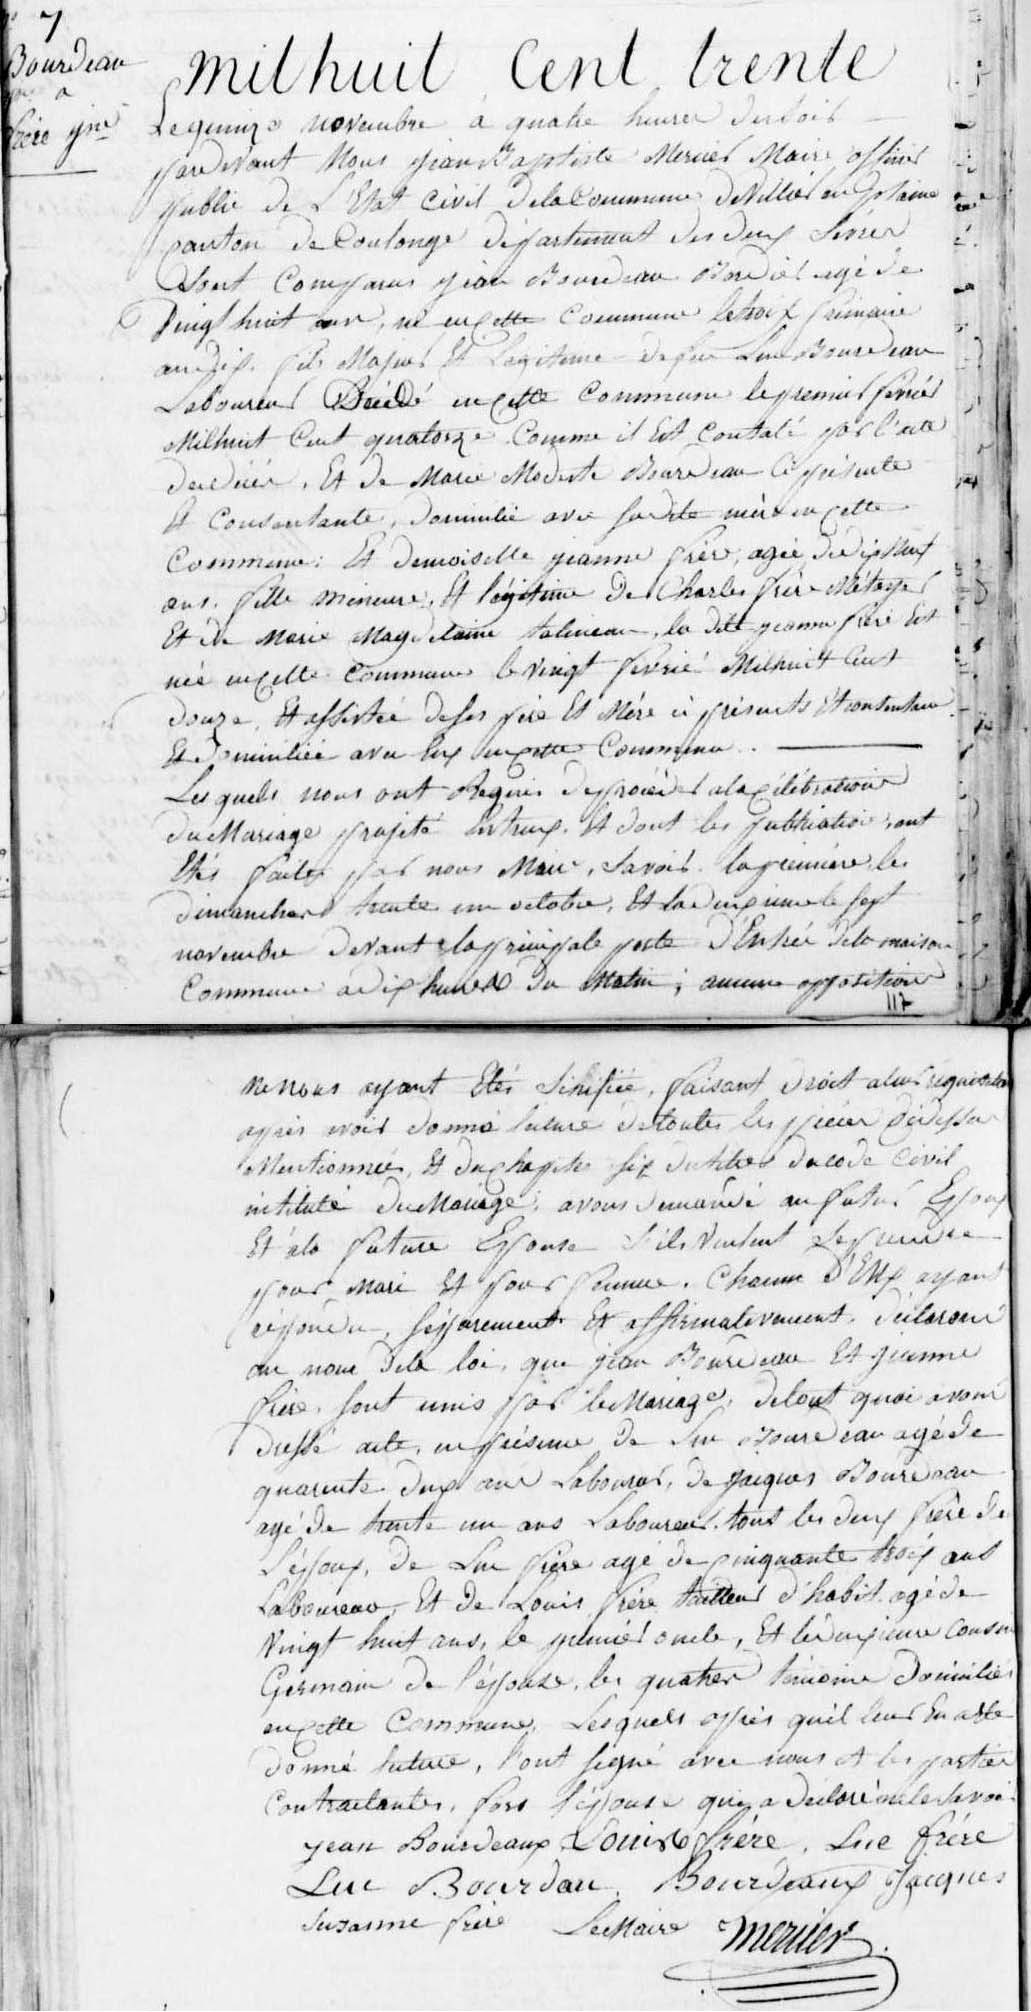 7
Bourdeau
a
frère jne
milhuit Cent trente
Le quinze novembre a quatre heures du soir
pardevant Nous jean Baptiste Mercier Maire officier
public de L'Etat Civil de la Commune de Villier en plaine
canton de Coulonge département des deux Sèvres
Sont Comparus jean Bourdeau Bordier agé de
Vingt huit ans, né en cette Commune le troix frimaire
an dix. fils Majeur Et Legitime de feu Luc Bourdeau
Laboureur Décédé en cette commune le premier fevrier
Milhuit Cent quatorze Comme il Est constaté par l'acte
de décès, Et de Marie Modeste Bourdeau ci présente
Et Consentante, Domicilié avec sa dite mère en cette
Commune: Et demoiselle jeanne frère, agée de dix Neuf
ans. fille mineure, Et légitime De Charles frère Métayer
Et de Marie Magdelaine talineau, la dite jeanne frère Est
née en cette Commune le vingt fevrié Milhuit Cent
douze, Et assistée de ses père Et Mère ci présents Et consentans
Et Domiciliée avec Eux en cette Commune.
Lesquels nous ont Requis de procéder a la célébration
du Mariage projeté Entreux. Et dont les publications, ont
Etés faites par nous Maire, Savoir. la première le
dimanche trente un octobre, Et la deuxieme le sept
novembre devant la principale porte D'Entrée de la maison
Commune a dix heures du Matin; aucune opposition
117
ne nous ayant Etés Sinifiée, faisant droit a leur réquisition
après avoir donné lecture de toutes les pièces ci dessus
Mentionnées, Et du chapitre six du titre du code Civil
intitulé du Mariage: avons demandé au futur Epoux
Et a la future Epouse S'ils veulent se prendre
pour Mari Et pour femme. Chacun d'Eux ayant
répondu, séparement Et affirmativement. déclarons
au nom de la loi, que jean Bourdeau Et jeanne
frère. sont unis par le Mariage; de tout quoi avons
dressé acte, en présence de Luc Bourdeau agé de
quarente deux ans Laboureur, de jacques Bourdeau
agé de trente un ans Laboureur. tous les deux frère de
l'époux, de Luc frère agé de cinquante troix ans
Laboureur, Et de Louis frère tailleur d'habit agé de
Vingt huit ans, le premier oncle, Et le deuxieme cousin
Germain de l'épouse, les quatres témoins Domiciliés
en cette Commune, Lesquels après qu'il leur En a Eté
donné lecture, l'ont signé avec nous et les parties
Contractantes, fors l'épouse qui a déclaré ne le savoir
jean Bourdeaux Louis frère. Luc frére
Luc Bourdau. Bourdeaux Jacques
Suzanne frère Le Maire mercier